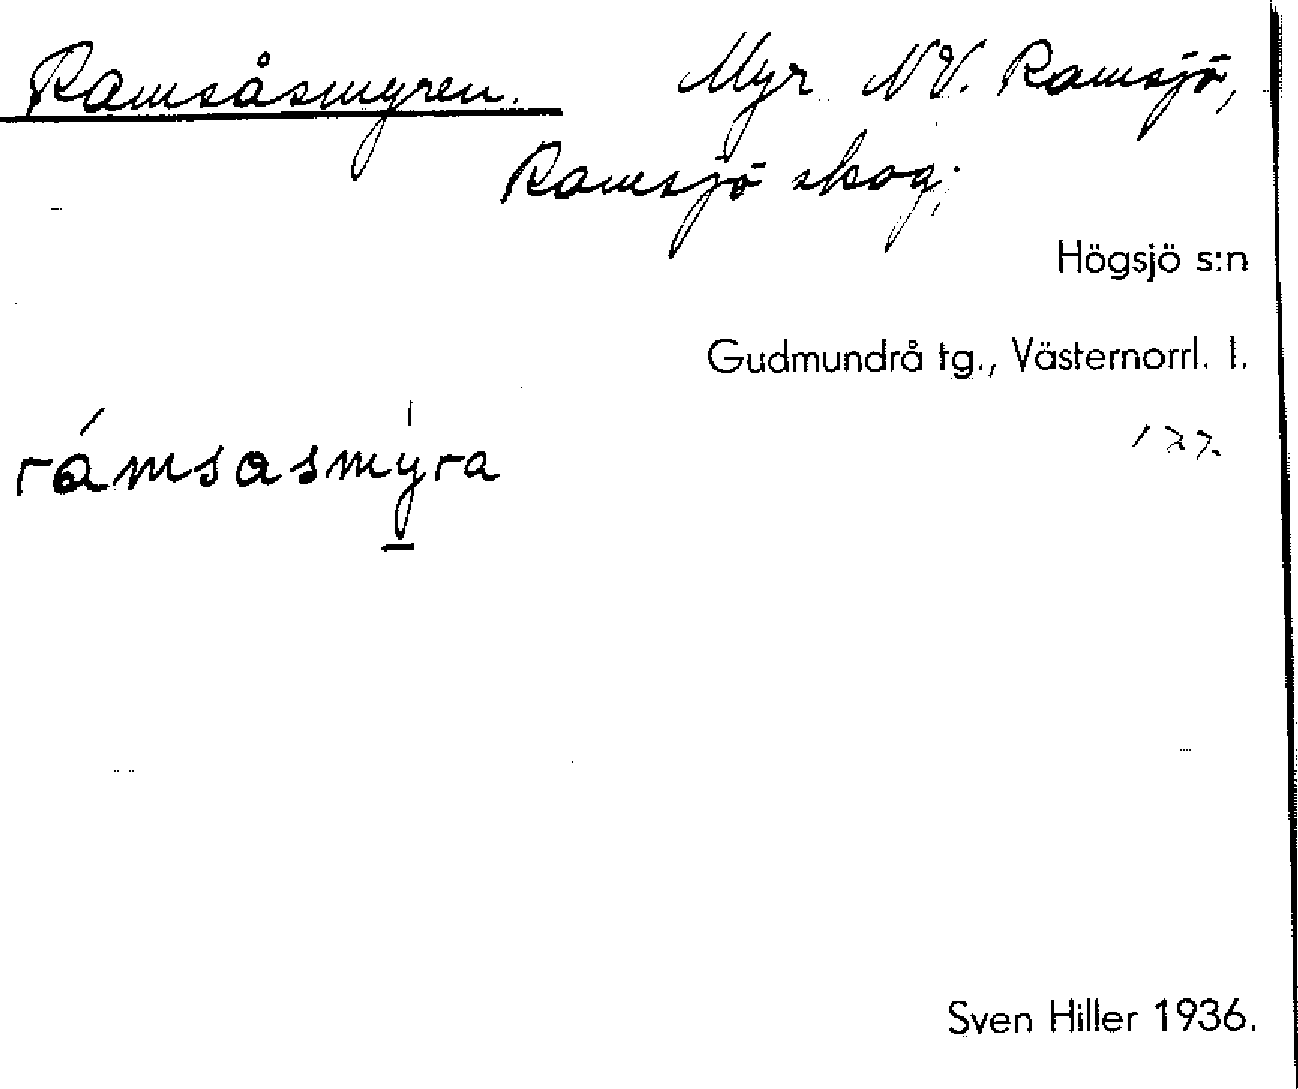 Ramsåsmyren. Myr NV. Ramsjö,
Ramsjö skog;
Högsjö s:n
Gudmundrå tg., Västernorrl. l.
rámsasmy̱ra